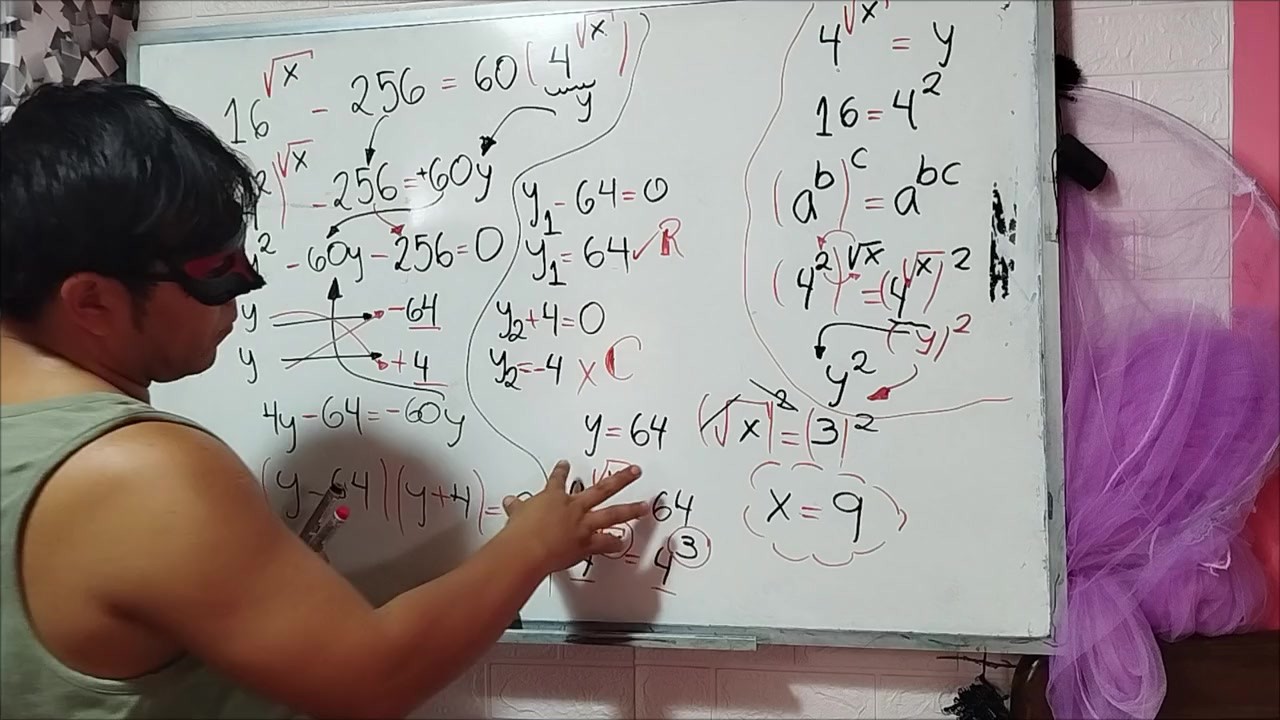 16^√x - 256 = 60(4^√x)
y
2)^√x - 256 = +60y
y² - 60y - 256 = 0
y -64
y +4
4y - 64 = -60y
(y - 64)(y + 4) =
y₁ - 64 = 0
y₁ = 64 ✓ R
y₂ + 4 = 0
y₂ = -4 x C
y = 64
64
4 = 4³
(√x)² = (3)²
x = 9
4^√x = y
16 = 4²
(a^b)^c = a^bc
(4²)^√x = (4^√x)²
(y)²
y²